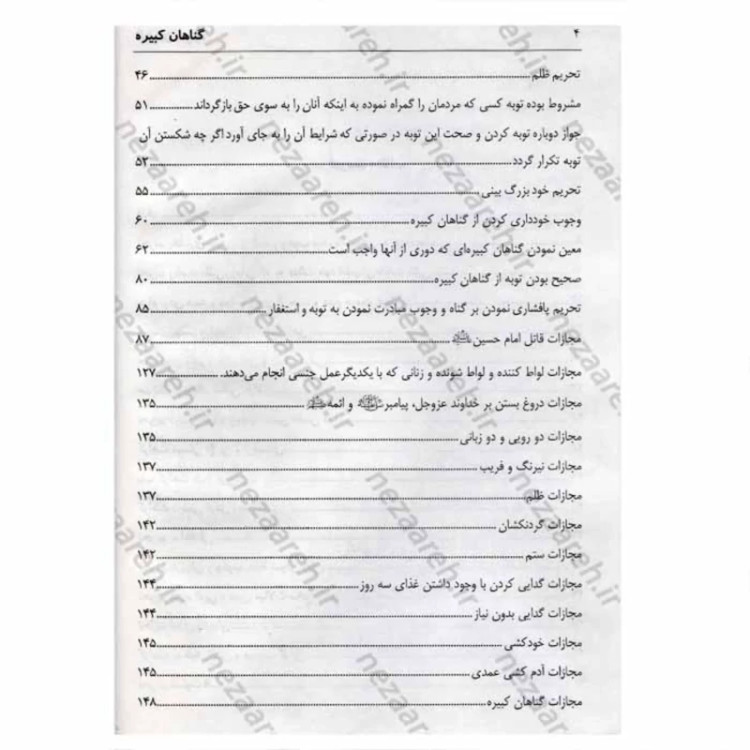 ۴ گناهان کبیره
تحریم ظلم ۴۶
مشروط بوده توبه کسی که مردمان را گمراه نموده به اینکه آنان را به سوی حق بازگرداند ۵۱
جواز دوباره توبه کردن و صحت این توبه در صورتی که شرایط آن را به جای آورد اگر چه شکستن آن
توبه تکرار گردد ۵۲
تحریم خود بزرگ بینی ۵۵
وجوب خودداری کردن از گناهان کبیره ۶۰
معین نمودن گناهان کبیره‌ای که دوری از آنها واجب است ۶۲
صحیح بودن توبه از گناهان کبیره ۸۰
تحریم پافشاری نمودن بر گناه و وجوب مبادرت نمودن به توبه و استغفار ۸۵
مجازات قاتل امام حسین ۸۷
مجازات لواط کننده و لواط شونده و زنانی که با یکدیگر عمل جنسی انجام می‌دهند. ۱۲۷
مجازات دروغ بستن بر خداوند عزوجل، پیامبر و ائمه ۱۳۵
مجازات دو رویی و دو زبانی ۱۳۵
مجازات نیرنگ و فریب ۱۳۷
مجازات ظلم ۱۳۷
مجازات گردنکشان ۱۴۲
مجازات ستم ۱۴۲
مجازات گدایی کردن با وجود داشتن غذای سه روز ۱۴۴
مجازات گدایی بدون نیاز ۱۴۴
مجازات خودکشی ۱۴۵
مجازات آدم کشی عمدی ۱۴۵
مجازات گناهان کبیره ۱۴۸
nezaareh.ir